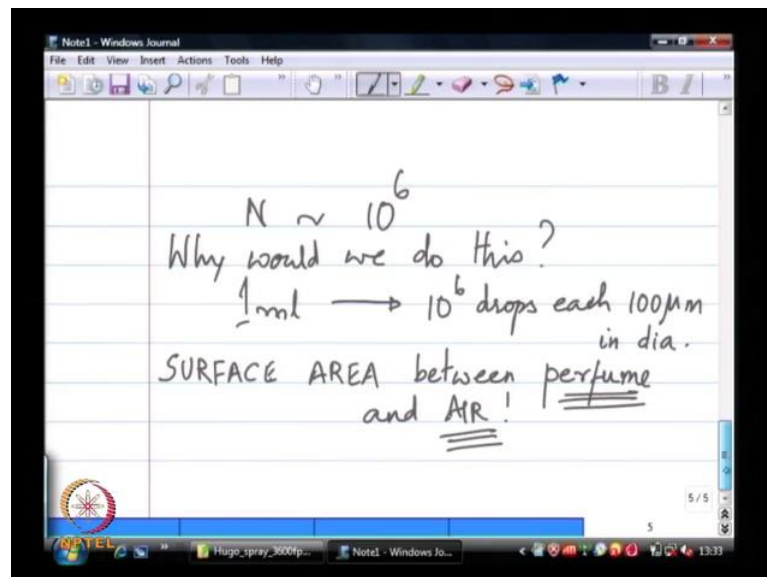 Note1 - Windows Journal
File Edit View Insert Actions Tools Help
B I
N ~ 10^6
Why would we do this?
1 ml → 10^6 drops each 100μm
in dia.
SURFACE AREA between perfume
and AIR!
5 / 5
5
NPTEL
Hugo_spray_3600fp...
Note1 - Windows Jo...
13:33